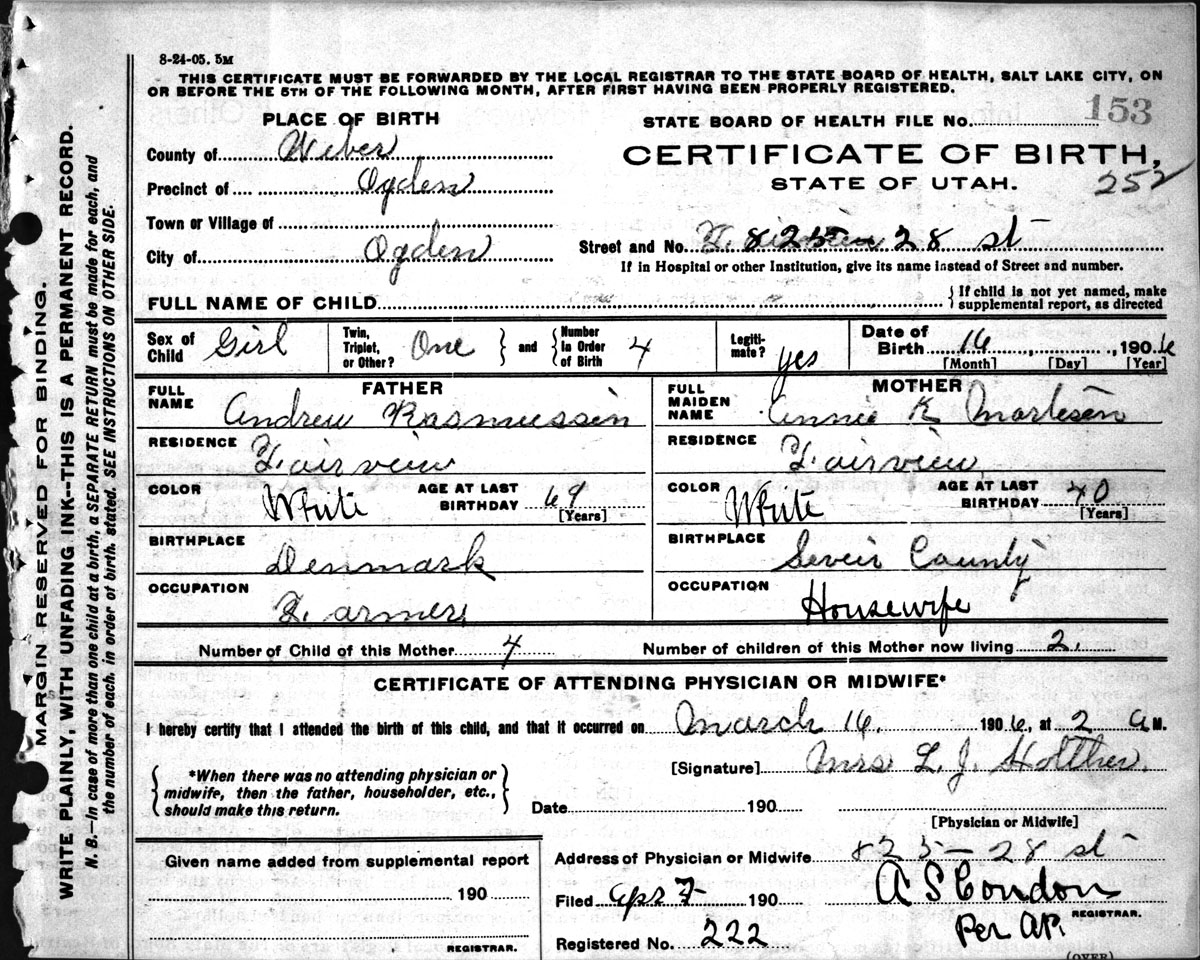 8-24-05. 5M
THIS CERTIFICATE MUST BE FORWARDED BY THE LOCAL REGISTRAR TO THE STATE BOARD OF HEALTH, SALT LAKE CITY, ON
OR BEFORE THE 5TH OF THE FOLLOWING MONTH, AFTER FIRST HAVING BEEN PROPERLY REGISTERED.
PLACE OF BIRTH
STATE BOARD OF HEALTH FILE No. 153
County of Weber
CERTIFICATE OF BIRTH,
Precinct of Ogden
STATE OF UTAH.
252
Town or Village of
City of Ogden
Street and No. 825 28 st
If in Hospital or other Institution, give its name instead of Street and number.
FULL NAME OF CHILD
{If child is not yet named, make
supplemental report, as directed
Sex of Child Girl
Twin, Triplet, or Other? One } and { Number in Order of Birth 4
Legitimate? yes
Date of Birth 16, 1906
[Month] [Day] [Year]
FATHER
FULL NAME Andrew Rasmussen
RESIDENCE Fairview
COLOR White AGE AT LAST BIRTHDAY 69 [Years]
BIRTHPLACE Denmark
OCCUPATION Farmer
MOTHER
FULL MAIDEN NAME Annie K Mortesen
RESIDENCE Fairview
COLOR White AGE AT LAST BIRTHDAY 40 [Years]
BIRTHPLACE Seveir County
OCCUPATION Housewife
Number of Child of this Mother 4 Number of children of this Mother now living 2.
CERTIFICATE OF ATTENDING PHYSICIAN OR MIDWIFE*
I hereby certify that I attended the birth of this child, and that it occurred on March 16. 1906, at 2 A M.
{*When there was no attending physician or
midwife, then the father, householder, etc.,
should make this return.}
[Signature] Mrs L. J. Holther.
Date 190
[Physician or Midwife]
Given name added from supplemental report
190
REGISTRAR.
Address of Physician or Midwife 825-28 st
Filed Apr 7 190 A S Condon
REGISTRAR.
Registered No. 222 Per AP.
(OVER)
MARGIN RESERVED FOR BINDING.
WRITE PLAINLY, WITH UNFADING INK--THIS IS A PERMANENT RECORD.
N. B.—In case of more than one child at a birth, a SEPARATE RETURN must be made for each, and
the number of each, in order of birth, stated. SEE INSTRUCTIONS ON OTHER SIDE.